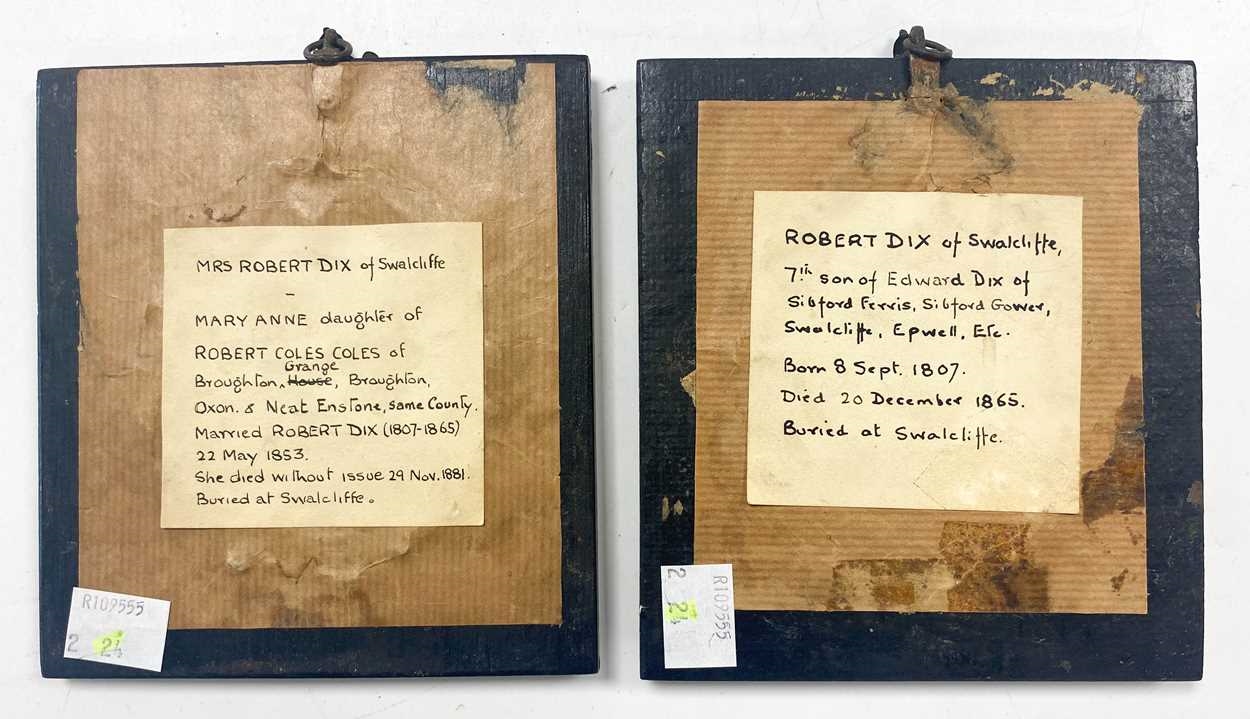 MRS ROBERT DIX of Swalcliffe
–
MARY ANNE daughter of
ROBERT COLES COLES of
Grange
Broughton, House, Broughton,
Oxon. & Neat Enstone, same County.
Married ROBERT DIX (1807-1865)
22 May 1853.
She died without issue 29 Nov. 1881.
Buried at Swalcliffe.
R109555
2 2½
ROBERT DIX of Swalcliffe,
7th son of Edward Dix of
Sibford Ferris, Sibford Gower,
Swalcliffe, Epwell, Etc.
Born 8 Sept. 1807.
Died 20 December 1865.
Buried at Swalcliffe.
R109555
2 2½